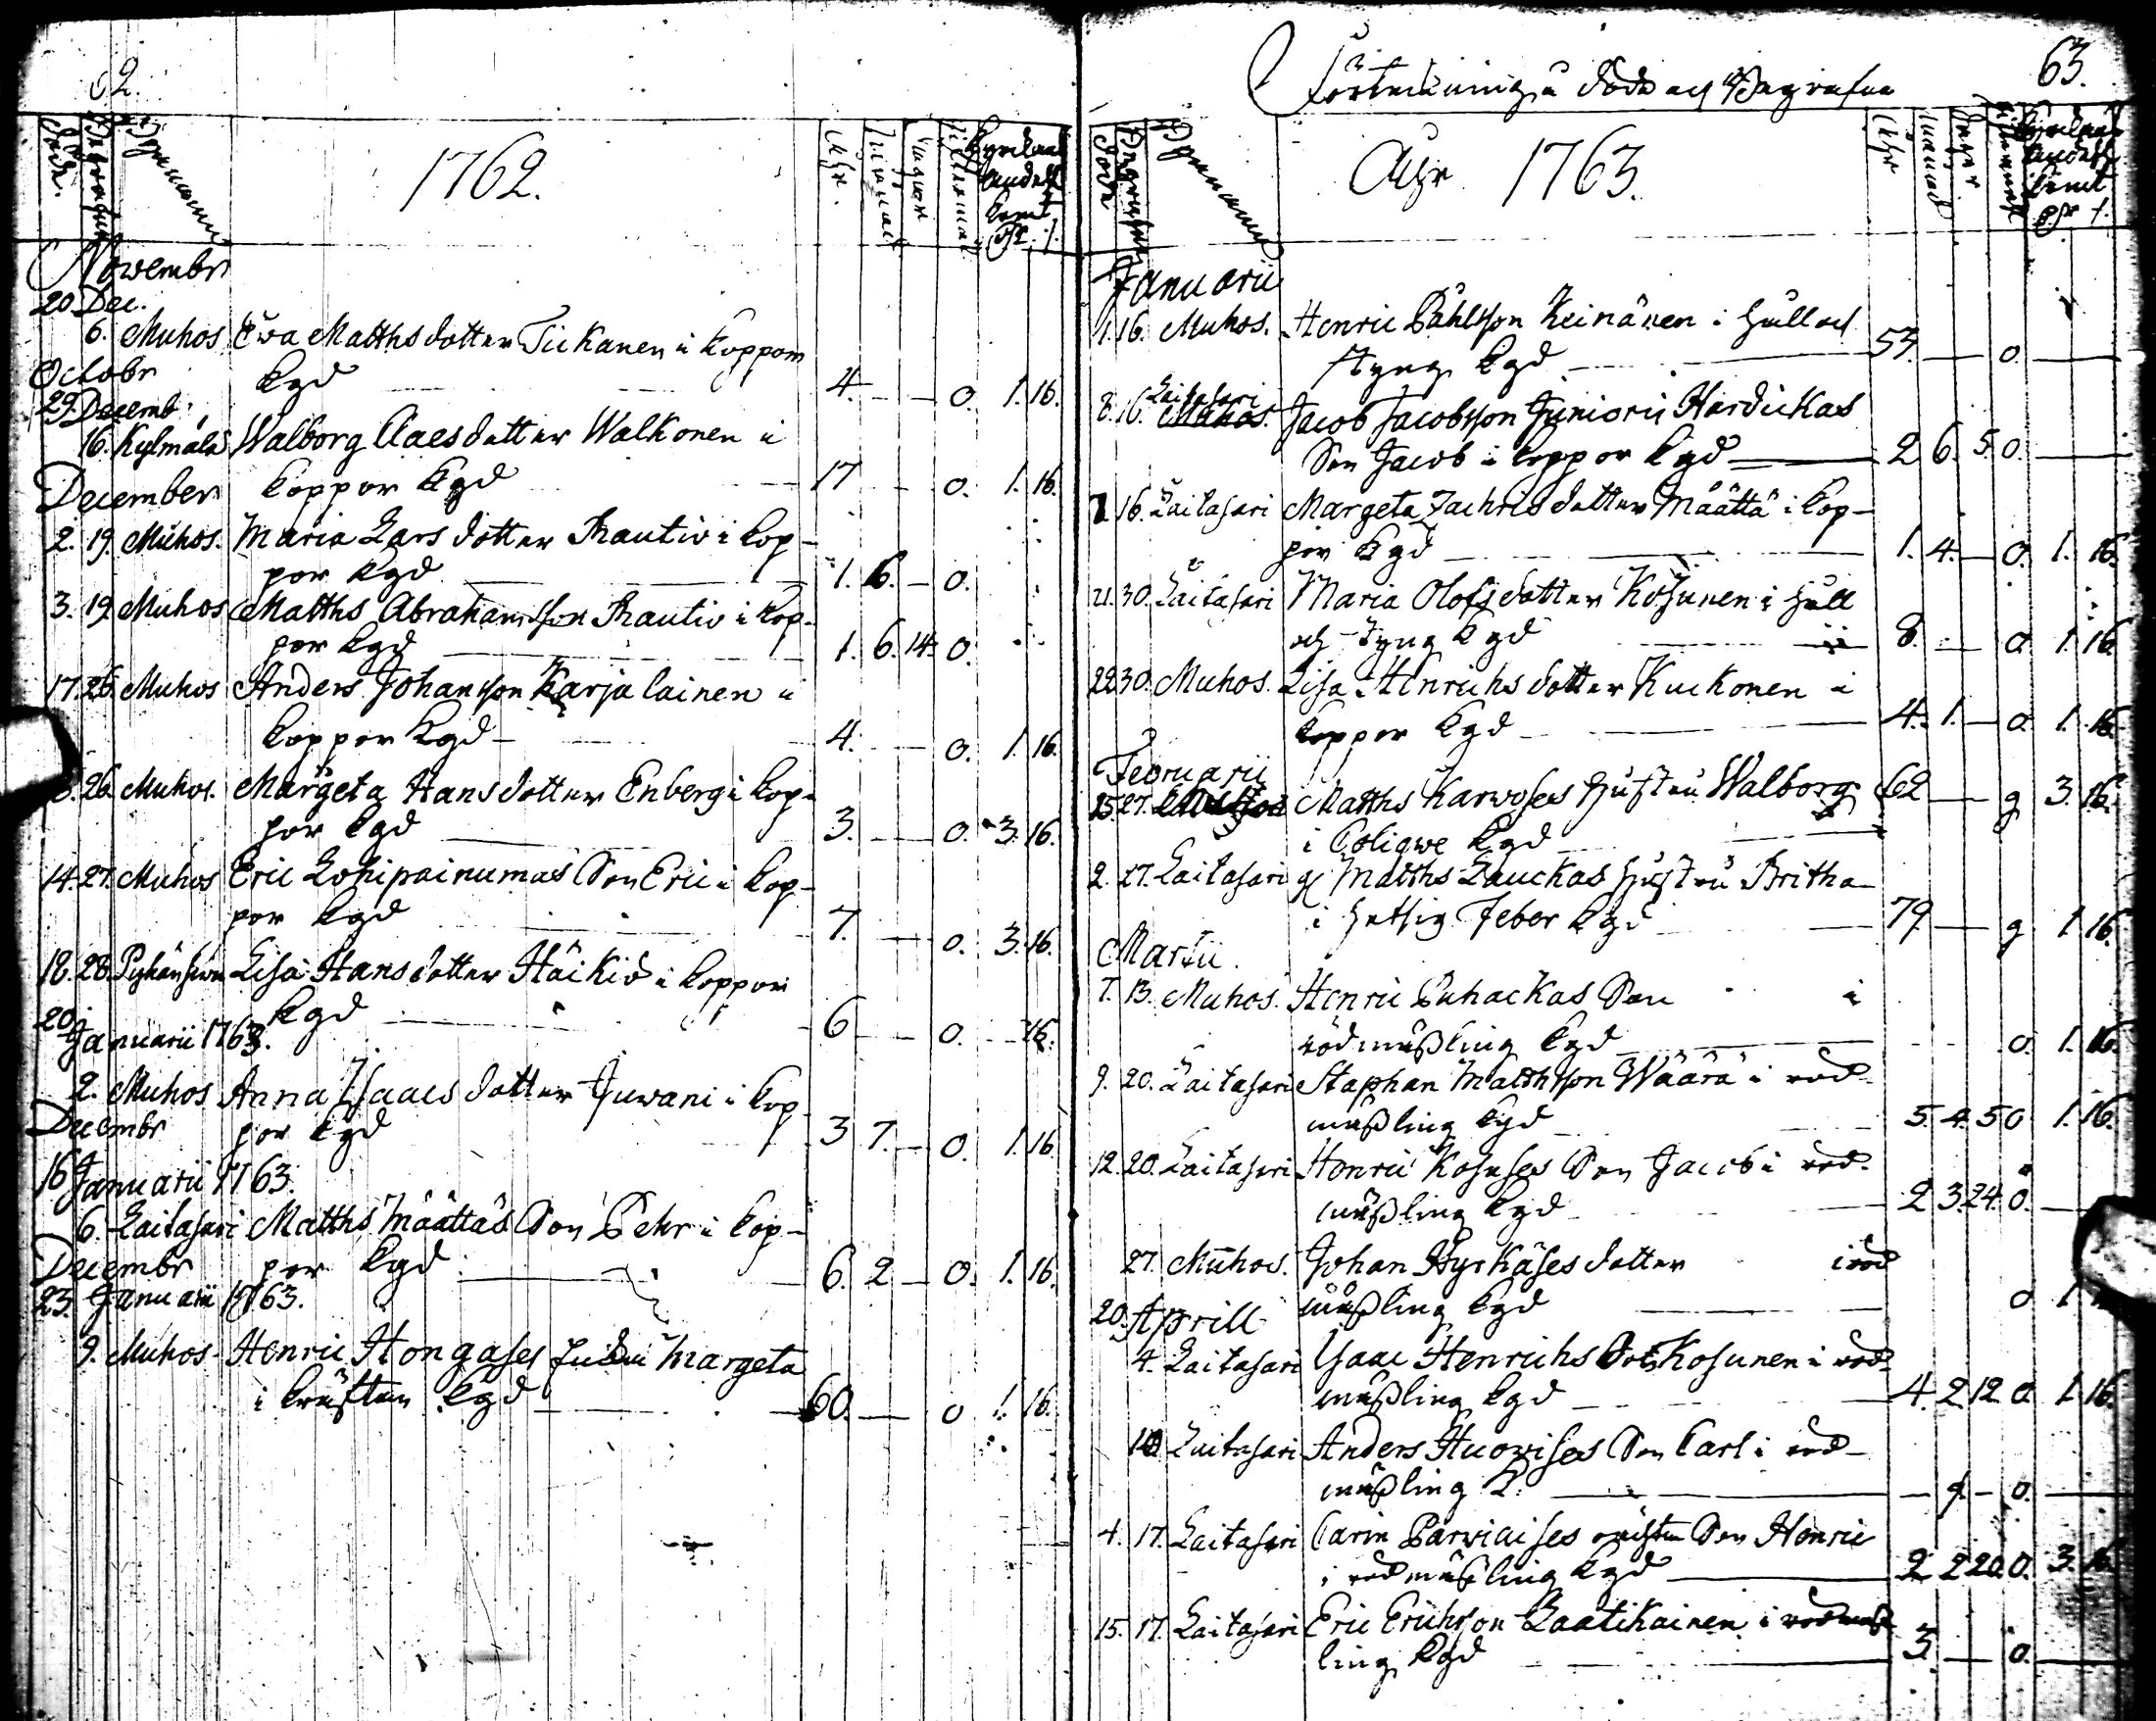 62.
1762.
Novembr
20 Dec.
6. Muhos Ewa Matthsdotter Tickanen i koppor
Octobr kgd 4. — o. 1. 16.
29. Decemb.
16. Kylmälä Walborg Claesdotter Walkonen i
December koppor kgd 17 — o. 1. 16.
2. 19. Muhos. Maria Larsdotter Rautio i kop-
por kgd 1. 6. — o.
3. 19. Muhos Matths Abrahamsson Rautio i kop-
por kgd 1. 6. 14. o.
17. 26. Muhos Anders Johansson Karjalainen i
koppor kgd 4. — o. 1. 16.
26. Muhos. Margeta Hansdotter Enberg i kop-
por kgd 3. — o. 3. 16.
14. 27. Muhos Eric Lohipainumas Son Eric i kop-
por kgd 7. — o. 3. 16.
18. 28. Lisa Hansdotter Häikiö i koppor
kgd 6 — o. — 16.
20. Januarii 1763.
2. Muhos Anna Isaacsdotter Juwani i kop-
Decembr por kgd 3 7. — o. 1. 16
16 Januarii 1763.
6. Laitasari Matths Määttäs Son Pehr i kop-
Decembr por kgd 6. 2 — o. 1. 16.
23. Januarii 1763.
9. Muhos Henric Hongases Margeta
i kgd 60. — o 1. 16.
Förteckning å döde och Begrafne 63.
Åhr 1763.
Januarii
1. 16. Muhos. Henric Påhlsson Keinänen i håll och
styng kgd 53. — o. —
8. 16. Laitasari Jacob Jacobsson Junioris Hardickas
Son Jacob i koppor kgd 2 6. 5. o. —
16. Laitasari Margeta Zachrisdotter Määttä i kop-
por kgd 1. 4. — o. 1. 16.
21. 30. Laitasari Maria Olofsdotter Kosunen i håll
och styng kgd 8. — o. 1. 16
22. 30. Muhos. Lisa Henrichsdotter Kuckonen i
koppor kgd 4. 1. — o. 1. 16.
Februarii
15. 27. Matths Karwoses hustru Walborg 62 — g 3. 16.
i Colique kgd
2. 27. Laitasari Matths Lauckas hustru Britha
i hettsig Feber kgd 79 — g 1 16.
Martii.
7. 13. Muhos. Henric Puhackas Son i
rödmåßling kgd o. 1. 16.
9. 20. Laitasari Staphan Matthsson Wäärä i röd-
måßling kgd 5. 4. 5 o 1. 16.
12. 20. Laitasari Henric Kosuses Son Jacob i röd-
måßling kgd 2 3 24. o. —
27. Muhos. Johan Hyrkäses dotter i röd
måßling kgd o 1
20. Aprill
4. Laitasari Isaac Henrichs Son Kosunen i röd-
måßling kgd 4. 2 12 o. 1 16.
10 Laitasari Anders Huowises Son Carl i röd-
måßling K. — 9. — o. —
4. 17. Laitasari Carin Parwiaises Son Henric
i rödmåßling kgd 2 2 20. o. 3. 16
15. 17. Laitasari Eric Erichsson Laatikainen i rödmåß
ling kgd 3. — o.